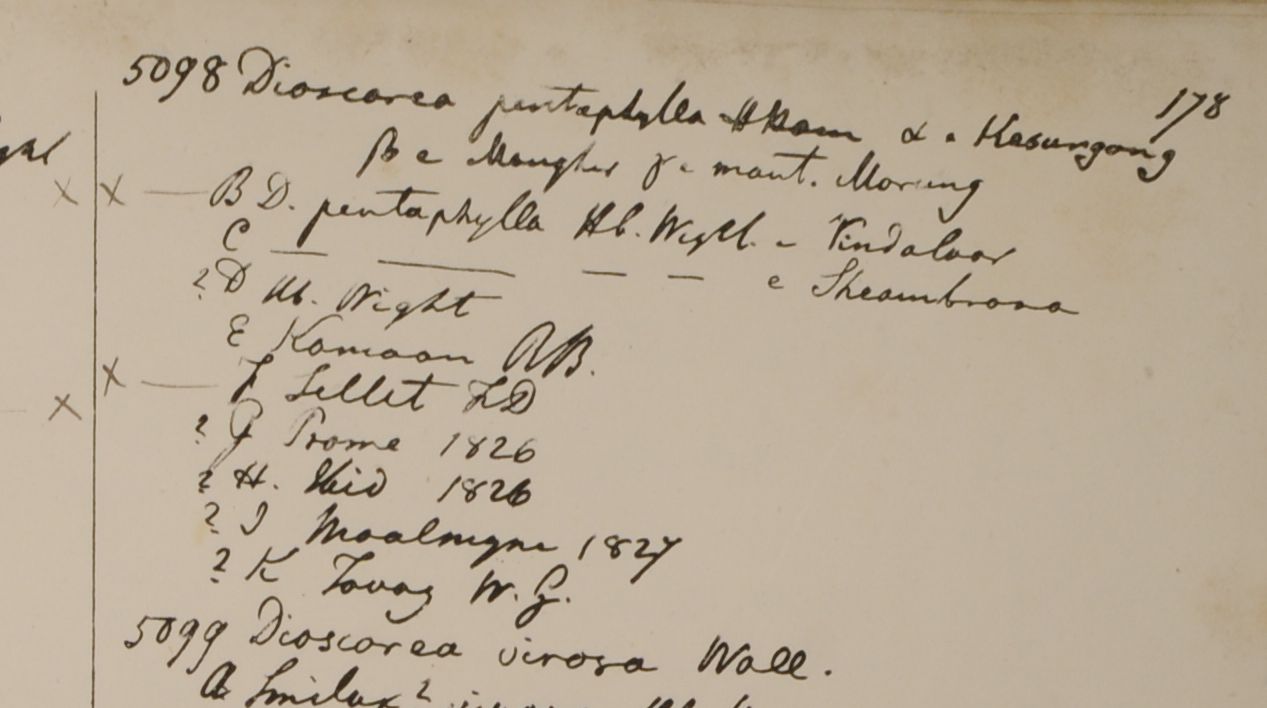 178
5098 Dioscorea pentaphylla HHam α e Kasungong
β e Mongher γ e mont. Morung
x x — B D. pentaphylla Hb. Wight. e Vindaloor
C — — — — e Sheambrona
? D Hb. Wight
E Kamaon RB.
x — F Sillet FD
x
? G Prome 1826
? H. Ibid 1826
? I Moalmyne 1827
? K Tavoy W.G.
5099 Dioscorea virosa Wall.
a Smilax ?